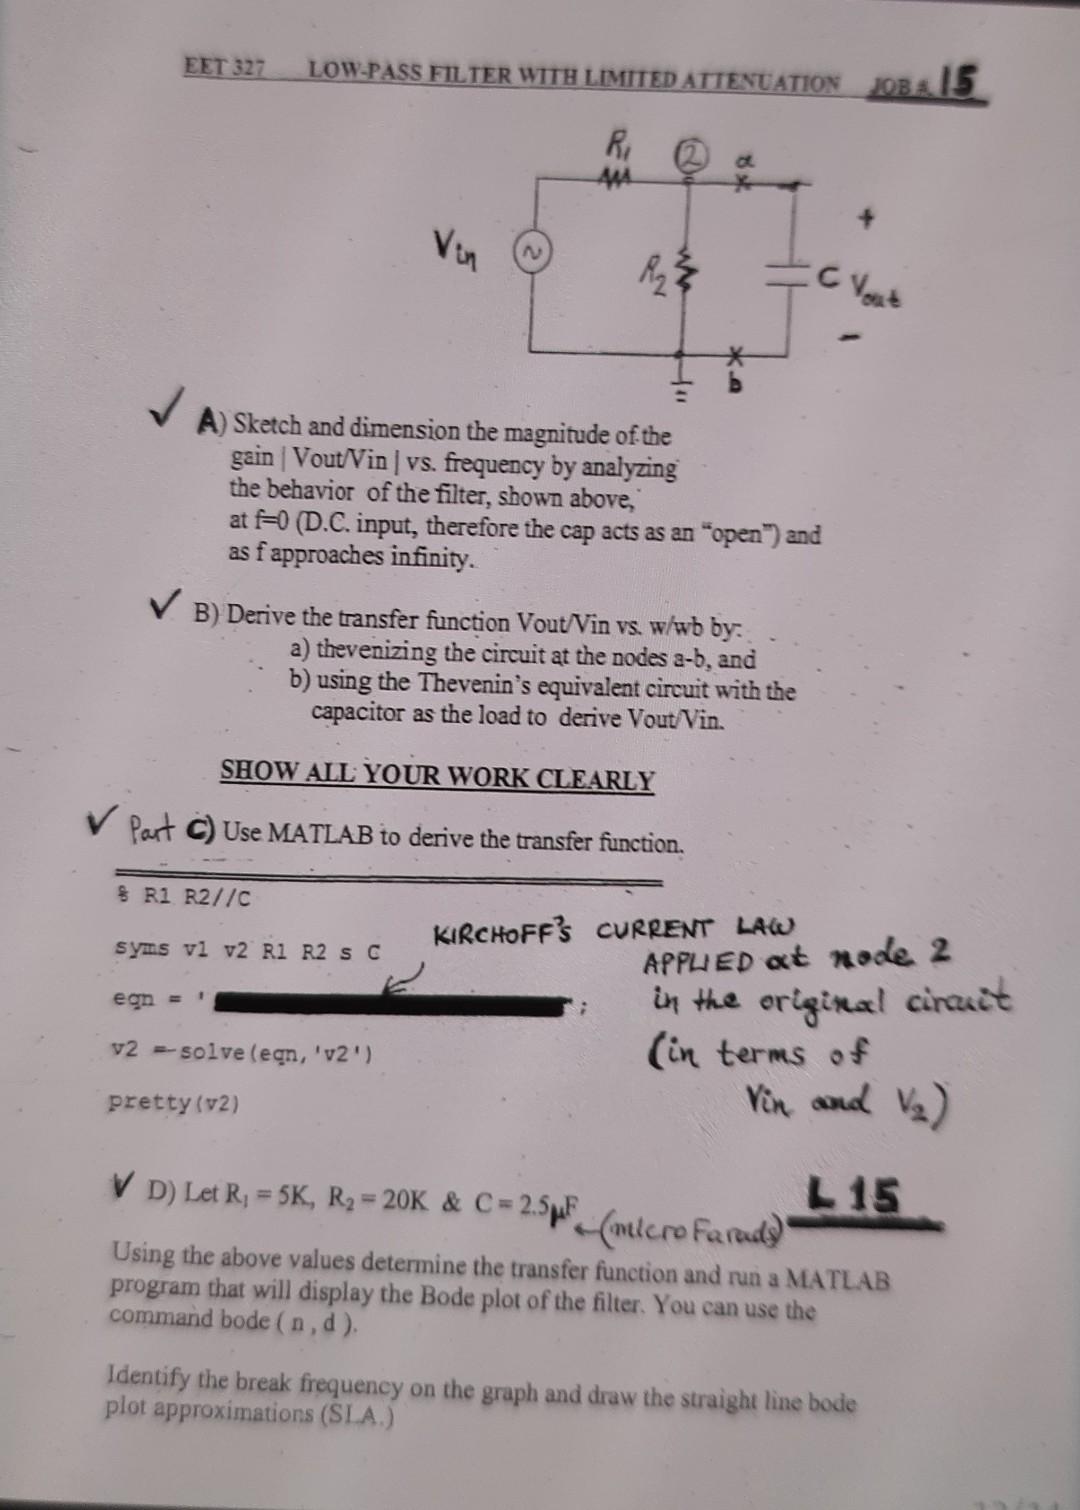 EET 327 LOW-PASS FILTER WITH LIMITED ATTENUATION JOB # 15
R1 2 a
+
Vin R2 C Vout
-
b
✓ A) Sketch and dimension the magnitude of the
gain | Vout/Vin | vs. frequency by analyzing
the behavior of the filter, shown above,
at f=0 (D.C. input, therefore the cap acts as an “open”) and
as f approaches infinity.
✓ B) Derive the transfer function Vout/Vin vs. w/wb by:
a) thevenizing the circuit at the nodes a-b, and
b) using the Thevenin's equivalent circuit with the
capacitor as the load to derive Vout/Vin.
SHOW ALL YOUR WORK CLEARLY
✓ Part C) Use MATLAB to derive the transfer function.
% R1 R2//C
KIRCHOFF'S CURRENT LAW
syms v1 v2 R1 R2 s C
APPLIED at node 2
eqn = ' ';
in the original circuit
v2 = solve(eqn, 'v2')
(in terms of
pretty(v2)
Vin and V2)
✓ D) Let R1 = 5K, R2 = 20K & C = 2.5μF ←(micro Farads) L 15
Using the above values determine the transfer function and run a MATLAB
program that will display the Bode plot of the filter. You can use the
command bode ( n , d ).
Identify the break frequency on the graph and draw the straight line bode
plot approximations (SLA.)